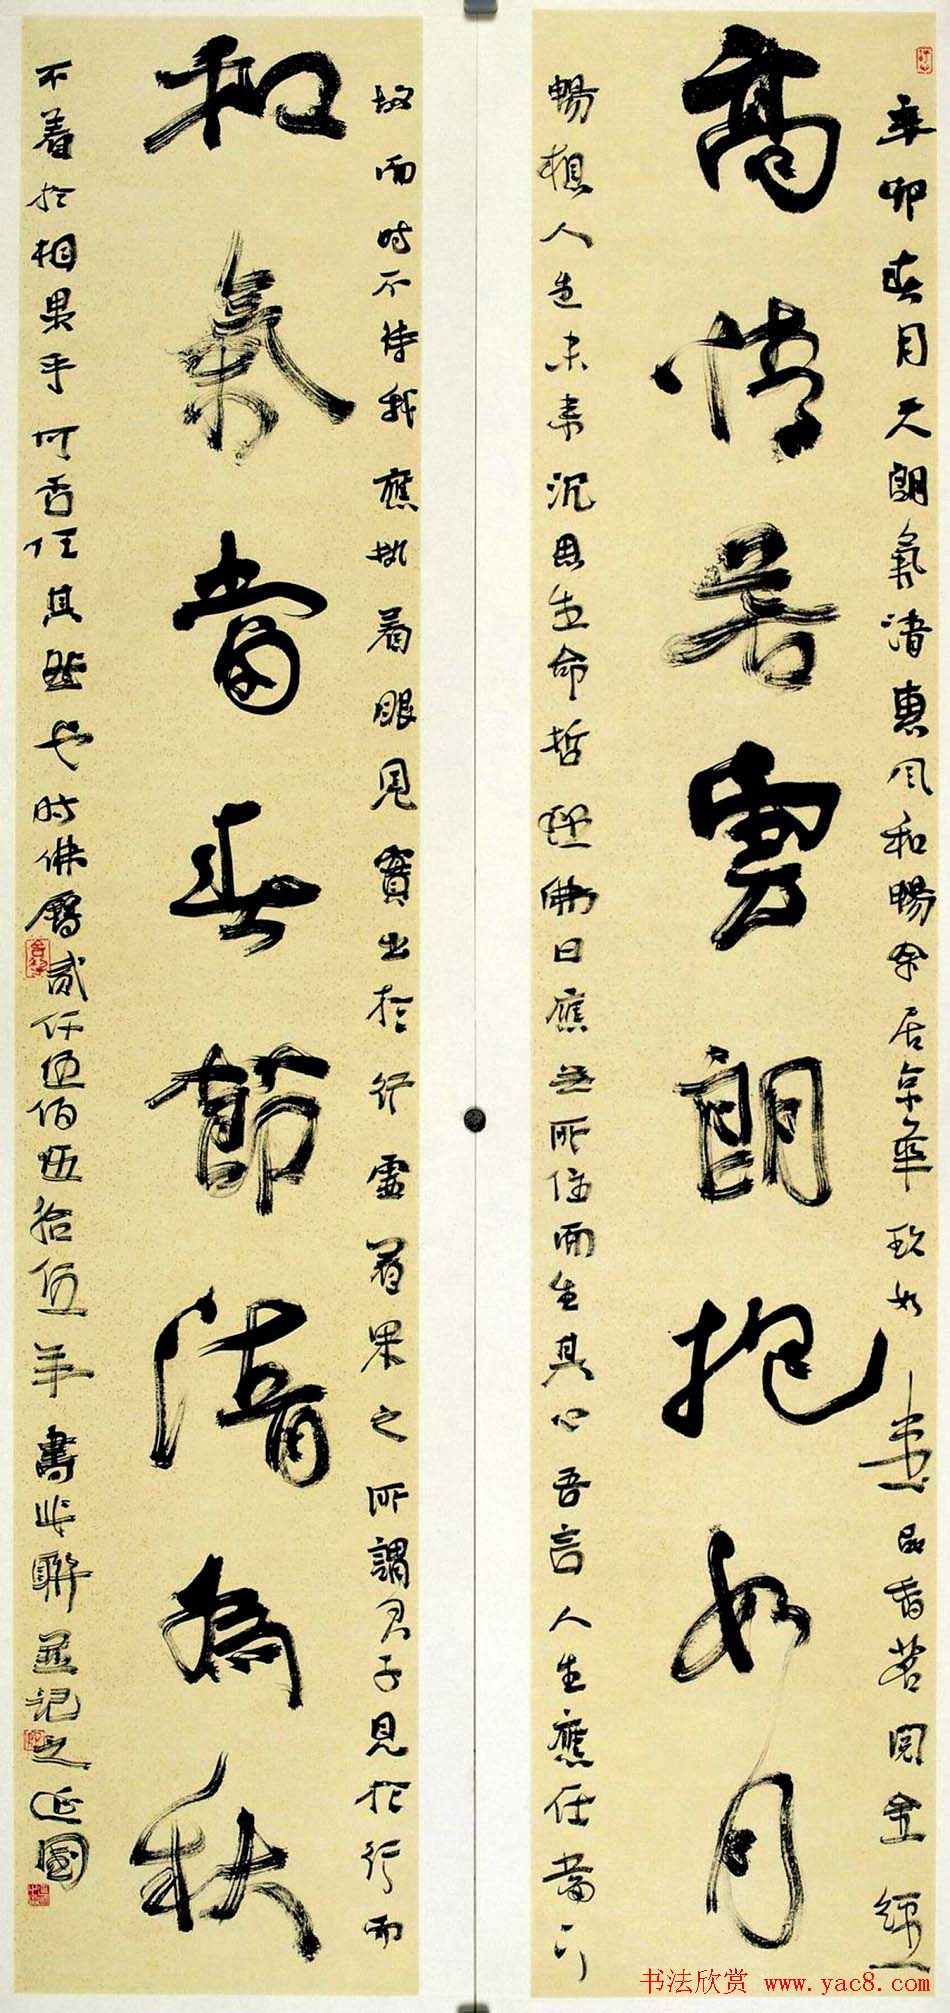 辛卯春月天朗氣清惠風和暢余居京華玖如品香茗閱金經
高情若雲朗抱如月
暢想人生未來沉思生命哲理佛曰應無所住而生其心吾言人生應任當下
故而時不待我應執着眼見實出於行雲着果之所謂君子見於行而
和氣當春節清為秋
不着於相果乎可否任其然也時佛曆貳仟伍佰伍拾伍年書此聯並記之延國
书法欣赏 www.yac8.com